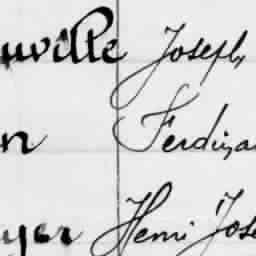 uville Joseph
n Ferdina
yer Henri Jose